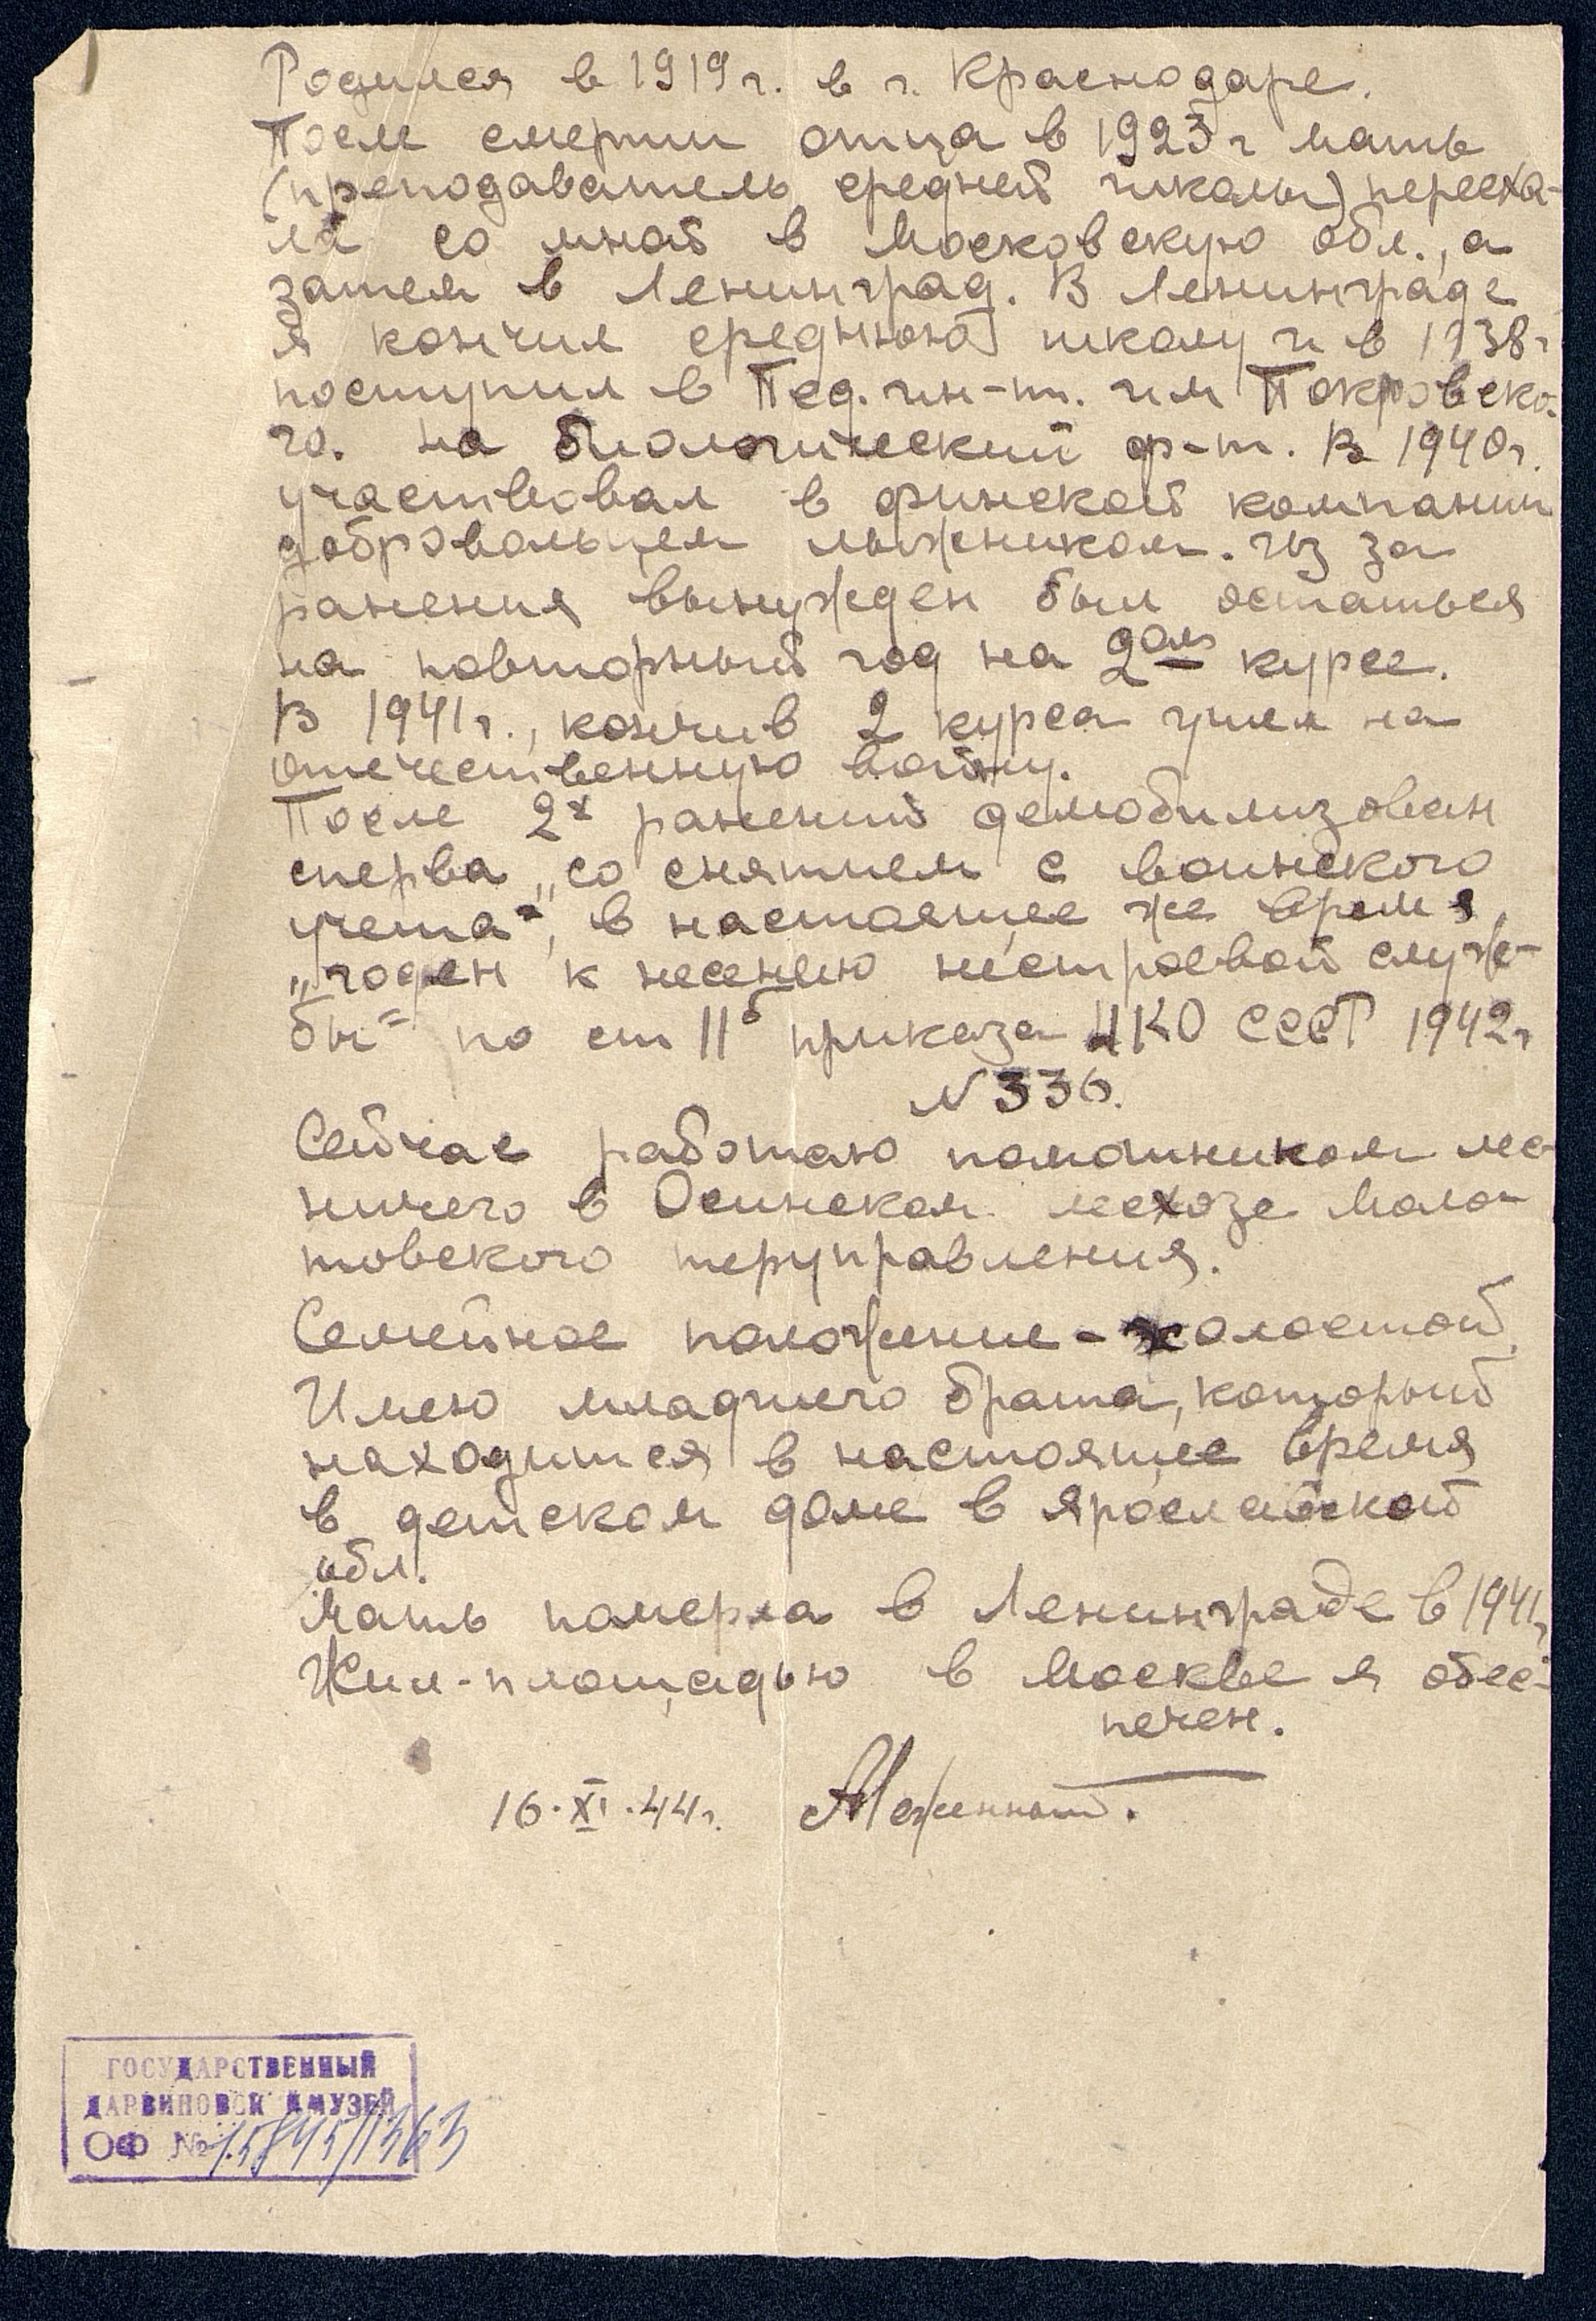 Родился в 1919 г. в г. Краснодаре.
После смерти отца в 1923 г мать
(преподаватель средней школы) перееха-
ла со мной в Московскую обл., а
затем в Ленинград. В Ленинграде
я кончил среднюю школу и в 1938 г
поступил в Пед. ин-т. им Покровско-
го. на биологический ф-т. В 1940 г.
участвовал в финской компании
добровольцем лыжником. Из за
ранения вынужден был остаться
на повторный год на 2ом курсе.
В 1941 г., кончив 2 курса ушел на
отечественную войну.
После 2х ранений демобилизован
сперва „со снятием с воинского
учета", в настоящее же время
„годен к несению нестроевой служ-
бы" по ст 11б приказа НКО СССР 1942 г
N 336.
Сейчас работаю помошником лес-
ничего в Осинском лесхозе Моло-
товского теруправления.
Семейное положение - холостой.
Имею младшего брата, который
находится в настоящее время
в детском доме в Ярославской
обл.
Мать померла в Ленинграде в 1941 г.
Жил-площадью в Москве я обес-
печен.
16.XI.44 г.
ГОСУДАРСТВЕННЫЙ
ДАРВИНОВСК Й МУЗЕЙ
ОФ № 15845/1363